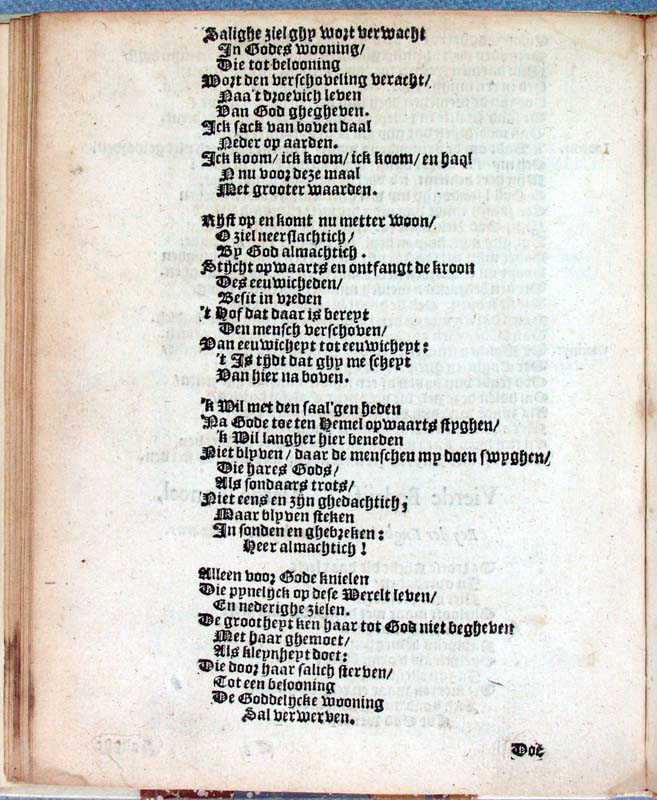 Salighe ziel ghy wort verwacht
In Godes wooning/
Die tot belooning
Wort den verschoveling veracht/
Naa't droevich leven
Van God ghegheven.
Ick sack van boven daal
Neder op aarden.
Ick koom/ ick koom/ ick koom/ en haal
N nu voor deze maal
Met grooter waarden.
Ryst op en komt nu metter woon/
O ziel neerslachtich/
By God almachtich.
Stycht opwaarts en ontfangt de kroon
Des eeuwicheden/
Besit in vreden
't Hof dat daar is bereyt
Den mensch verschoven/
Van eeuwicheyt tot eeuwicheyt:
't Is tydt dat ghy me scheyt
Van hier na boven.
'k Wil met den saal'gen heden
Na Gode toe ten Hemel opwaarts styghen/
'k Wil langher hier beneden
Niet blyven/ daar de menschen my doen swyghen/
Die hares Gods/
Als sondaars trots/
Niet eens en zijn ghedachtich;
Maar blyven steken
In sonden en ghebreken:
Heer almachtich!
Alleen voor Gode knielen
Die pynelyck op dese Werelt leven/
En nederighe zielen.
De grootheyt ken haar tot God niet begheven
Met haar ghemoet/
Als kleynheyt doet:
Die door haar salich sterven/
Tot een belooning
De Goddelijcke wooning
Sal verwerven.
Doe